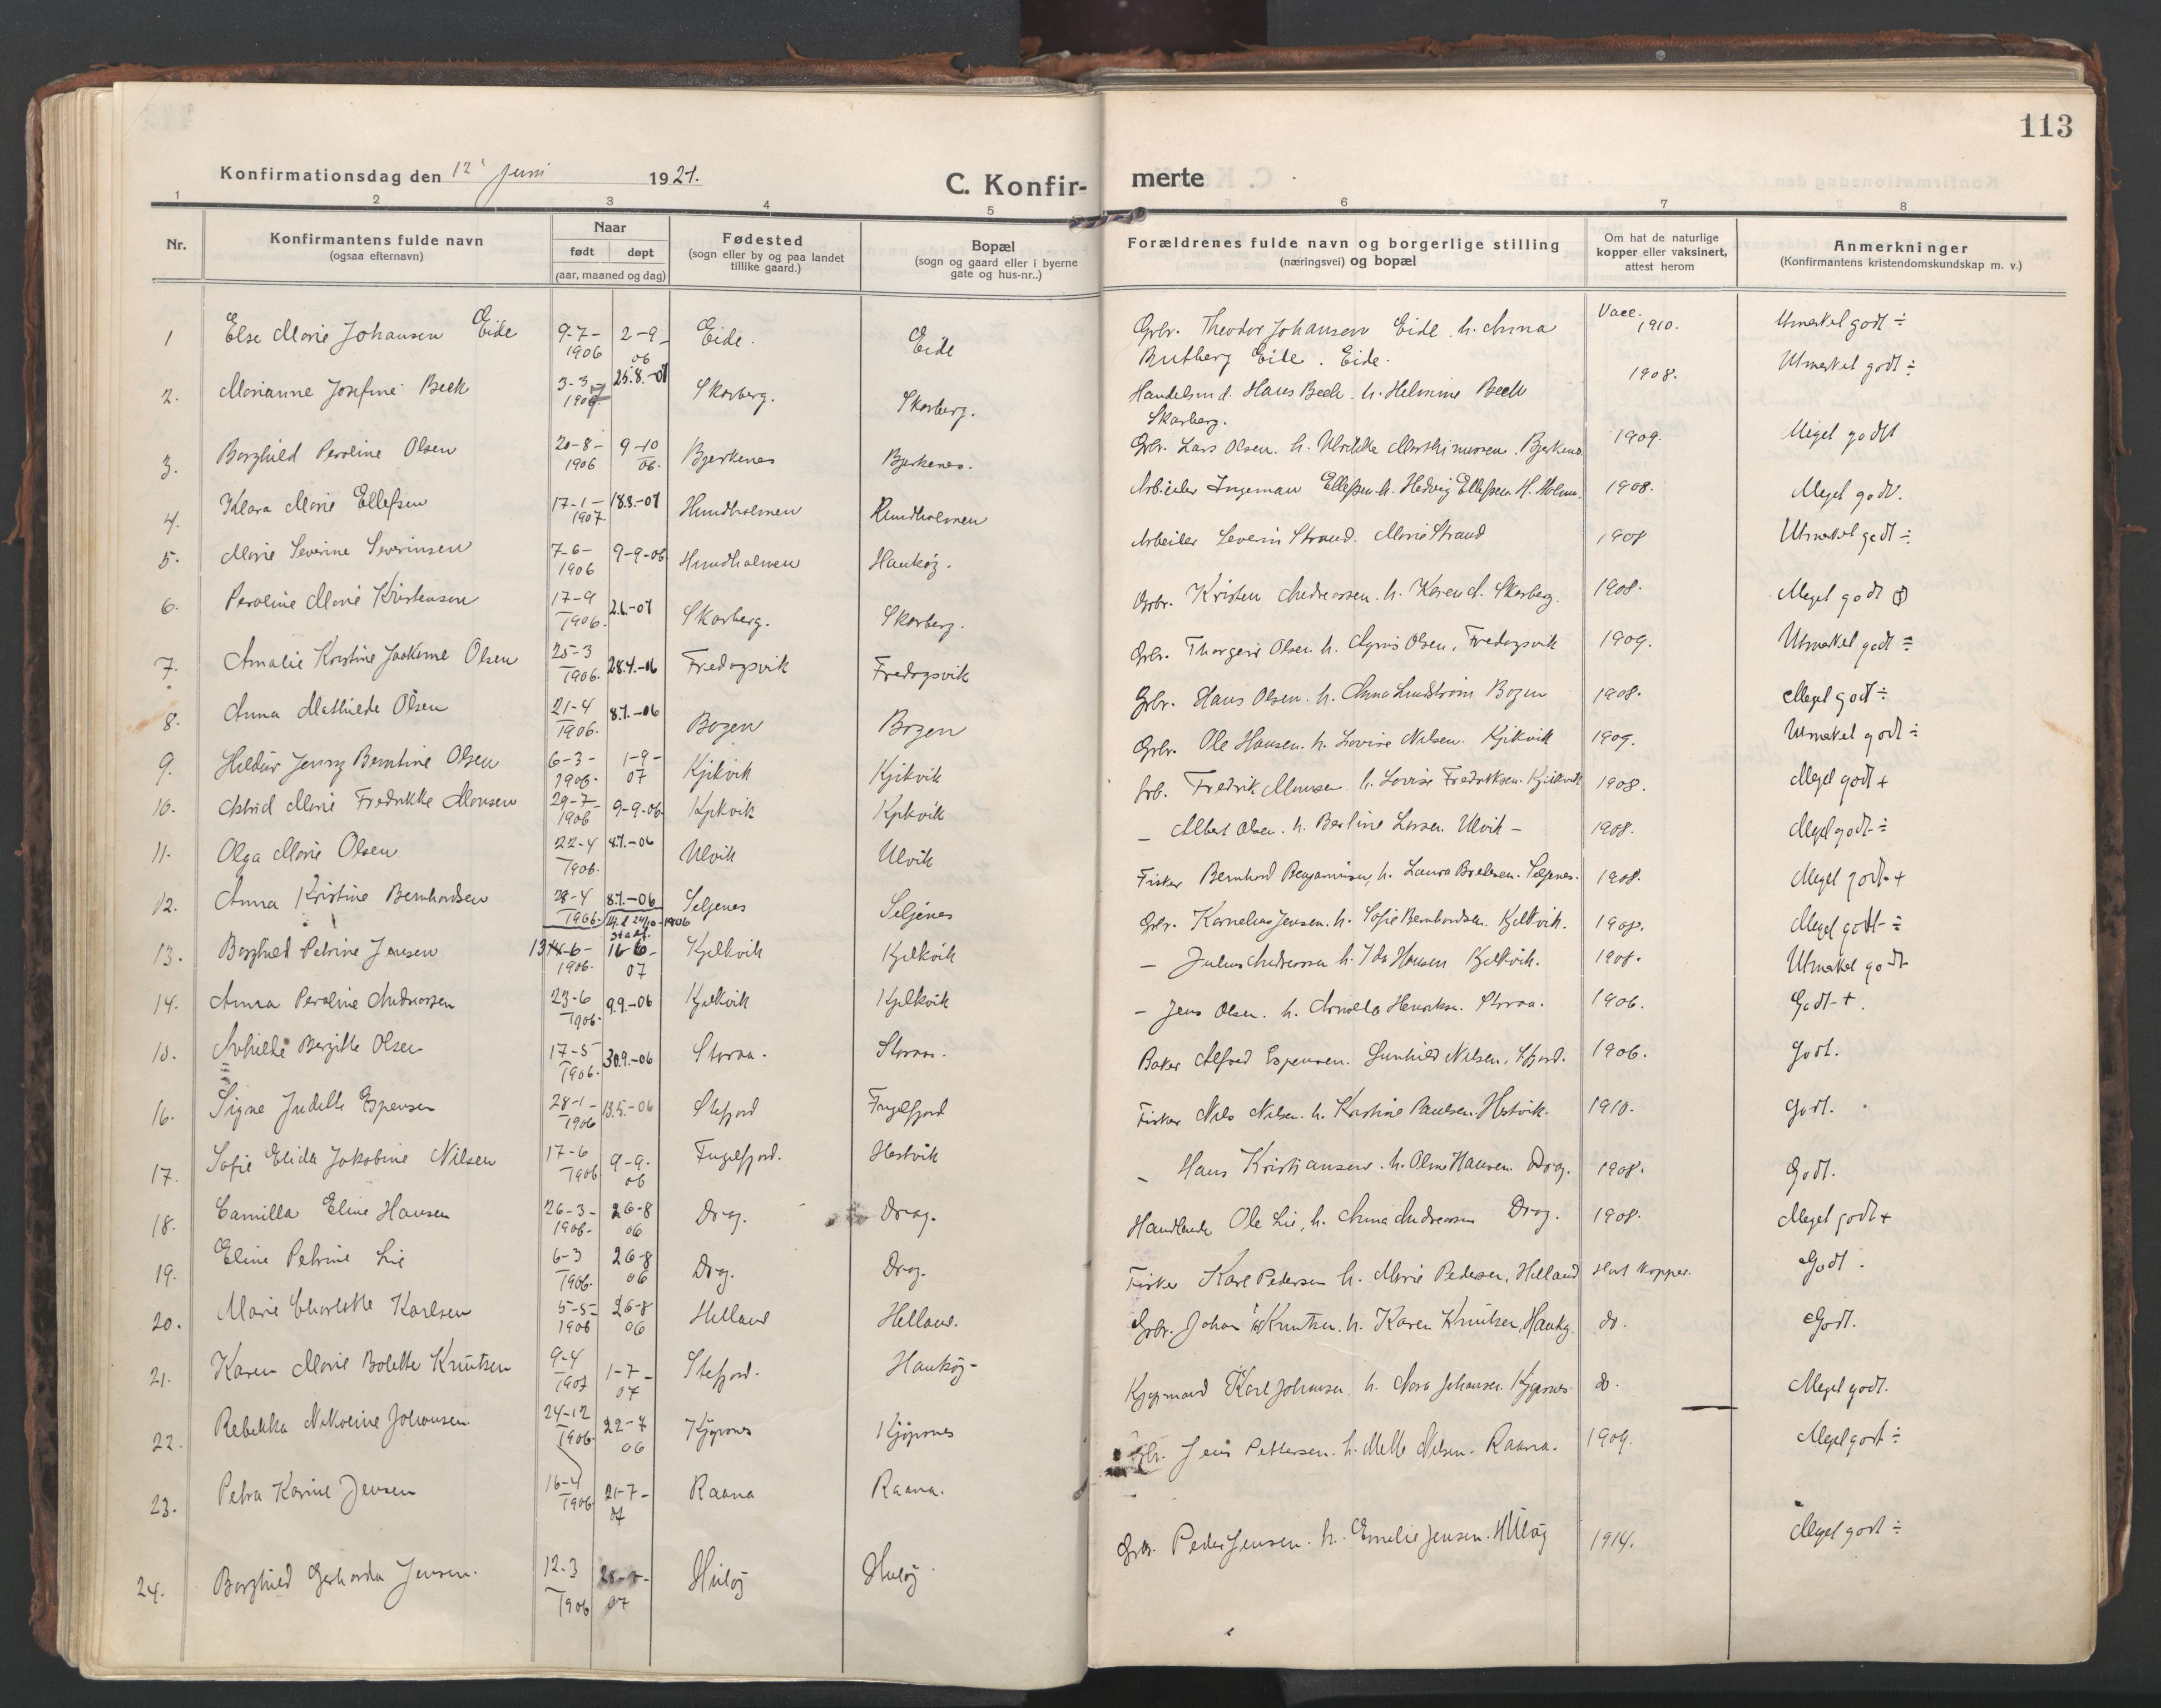 113
Konfirmationsdag den 12' Juni 1921.
C. Konfir-
merte
1 2 3 4 5 6 7 8
Nr.
Konfirmantens fulde navn
(ogsaa efternavn)
Naar
født døpt
(aar, maaned og dag)
Fødested
(sogn eller by og paa landet
tillike gaard.)
Bopæl
(sogn og gaard eller i byerne
gate og hus-nr..)
Forældrenes fulde navn og borgerlige stilling
(næringsvei) og bopæl
Om hat de naturlige
kopper eller vaksinert,
attest herom
Anmerkninger
(Konfirmantens kristendomskundskap m. v.)
1 Else Marie Johansen Eide 9-7-1906 2-9-06 Eide. Eide Grbr. Theodor Johansen Eide. h. Anna
Eide. Eide. Vacc. 1910. Utmerket godt ÷
2. Marianne Josefine Beck 3-3 25.8.-07 Skarberg. Skarberg. Handelsmd. Hans Beck. h. Helmine Beck
Skarberg. 1908. Utmerket godt ÷
3. Borghild Peroline Olsen 20-8-1906 9-10 06. Bjerkenes Bjerkenes. Grbr. Lars Olsen. h. Ulrikke Marthinussen. Bjerkenes 1909. Meget godt
4. Klara Marie Ellefsen 17-1-1907 18.8.-07 Hundholmen Hundholmen Arbeider Ingeman Ellefsen. h. Hedvig Ellefsen H. Holm. 1908. Meget godt.
5. Marie Severine Severinsen 7-6-1906 9-9-06 Hundholmen Haukøy. Arbeider Severin Strand. Marie Strand 1908 Utmerket godt ÷
6. Peroline Marie Kristensen 17-9 1906. -07 Skarberg. Skarberg. Grbr. Kristen Andreassen. h. Karen A. Skarberg. 1908. Meget godt
7. Amalie Kristine Joakime Olsen 25-3 1906. -06 Fredagsvik Fredagsvik Grbr. Thorgeir Olsen h. Agnes Olsen, Fredagsvik 1909. Utmerket godt ÷
8. Anna Mathilde Olsen 21-4 1906. 8.7.-06 Bogen Bogen Grbr. Hans Olsen. h. Anna Lindstrøm Bogen 1908. Meget godt ÷
9. Hildur Jenny Berntine Olsen 6-3-1906. 1-9-07 Kjikvik Kjikvik Grbr. Ole Hansen. h. Lovise Nilsen. Kjikvik 1909. Utmerket godt ÷
10. Astrid Marie Fredrikke Monsen 29-7-1906 9-9-06 Kjikvik Kjikvik Grb. Fredrik Monsen. h. Lovise Fredriksen. Kjikvik 1908. Meget godt +
11. Olga Marie Olsen 22-4 1906. 8.7.-06 Ulvik Ulvik — Albert Olsen. h. Bertine Larsen. Ulvik – 1908. Meget godt ÷
12. Anna Kristine Bernhardsen 28-4 1906. 8.7.-06 Seljenes Seljenes Fisker Bernhard Benjaminsen, h. Laura. Seljenes. 1908. Meget godt +
13. Borghild Petrine Jensen 13 6-1906. 16-6-07 Kjelkvik Kjelkvik Grbr. Kornelius Jensen. h. Sofie Bernhardsen. Kjelkvik. 1908. Meget godt ÷
14. Anna Peroline Andreassen 23-6 1906. 9.9.-06 Kjelkvik Kjelkvik — Julius Andreassen h. Ida Hansen Kjelkvik. 1908. Utmerket godt
15. Bergitte Olsen 17-5 1906. 30.9.-06 Storaa. Storaa. – Jens Olsen. h. Henriksen. Storaa. 1906. Godt +.
16. Signe Judette Espensen 28-1-1906 13.5.-06 Stefjord Fuglefjord Baker Alfred Espensen. Gunhild Nilsen, Sfjord. 1906. Godt.
17. Sofie Elida Jakobine Nilsen 17-6 1906 9-9-06 Fuglefjord. Hestvik Fisker Nils Nilsen. h. Kristine Paulsen. Hestvik. 1910. Godt.
18. Camilla Eline Hansen 26-3-1906- 26-8 06 Drag. Drag. – Hans Kristiansen. h. Oline Hansen. Drag. 1908. Godt.
19. Eline Petrine Lie 6-3 1906. 26-8 06 Drag. Drag. Handlende Ole Lie, h. Anna Andreassen Drag. 1908. Meget godt +
20. Marie Charlotte Karlsen 5-5-1906 26-8 06 Helland Helland. Fisker Karl Pedersen h. Marie Pedersen, Helland Hat kopper. Godt.
21. Karen Marie Bolette Knutsen 9-4 1907 1-7-07 Stefjord. Haukøy- Grbr. Johan Knutsen. h. Karen Knutsen, Haukøy. do. Godt.
22. Rebekka Nikoline Johansen. 24-12 1906. 22-7 06 Kjøpsnes Kjøpsnes Kjøpmand Karl Johansen. h. Nora Johansen. Kjøpsnes. do. Meget godt.
23. Petra Karine Jensen 16-4 1906 21-7-07 Raana Raana. Grbr. Jens Pettersen. h. Mette Nilsen. Raana. 1909. Meget godt ÷
24. Borghild Gerharda Jensen. 12-3 1906 07 Huløy Huløy Grbr. Peder Jensen. h. Emelie Jensen. Huløy 1914. Meget godt ÷